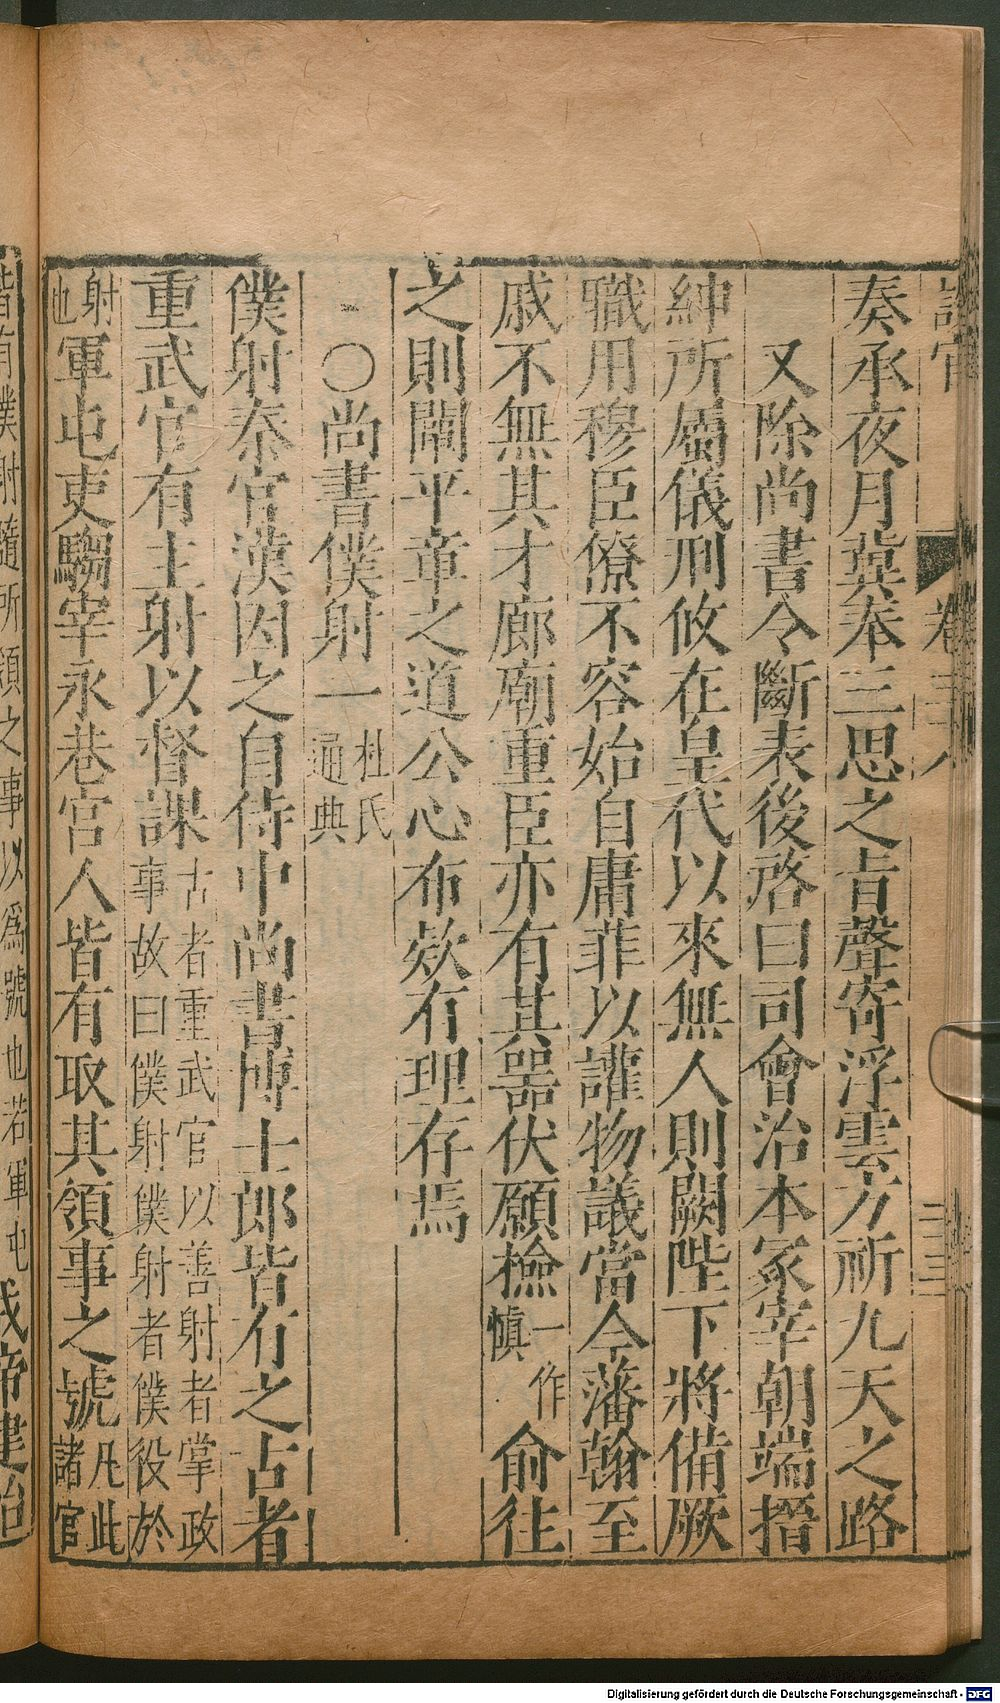 奏承夜月冀奉三思之旨聲寄浮雲方祈九天之路
又除尚書令斷表後啓曰司會治本冢宰朝端搢
紳所屬儀刑攸在皇代以來無人則闕陛下將備厥
職用穆臣僚不容始自庸菲以讙物議當今藩翰至
戚不無其才廊廟重臣亦有其器伏願檢一作慎俞往
之則闡平章之道公心布欸有理存焉
○尚書僕射一杜氏通典
僕射秦官漢因之自侍中尚書博士郎皆有之古者
重武官有主射以督課古者重武官以善射者掌政事故曰僕射僕射者僕役於
射也軍屯吏騶宰永巷宮人皆有取其領事之號凡此諸官
皆有僕射隨所領之事以爲號也若軍屯
Digitalisierung gefördert durch die Deutsche Forschungsgemeinschaft - DFG